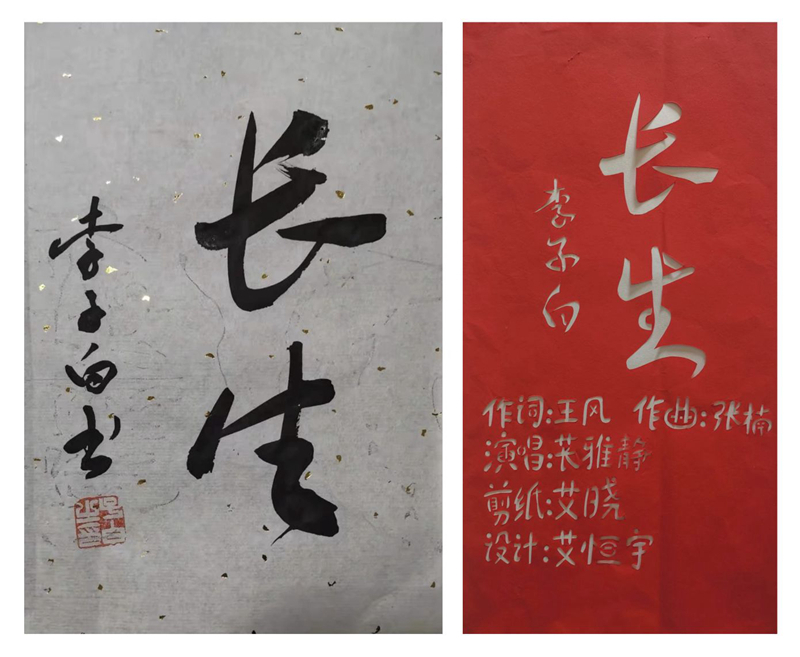 长生
李子白书
长生
李子白
作词:王风 作曲:张楠
演唱:苌雅静
剪纸:艾晓
设计:艾恒宇